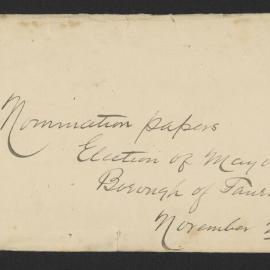 Nomination papers
Election of Mayo
Borough of Taur
November